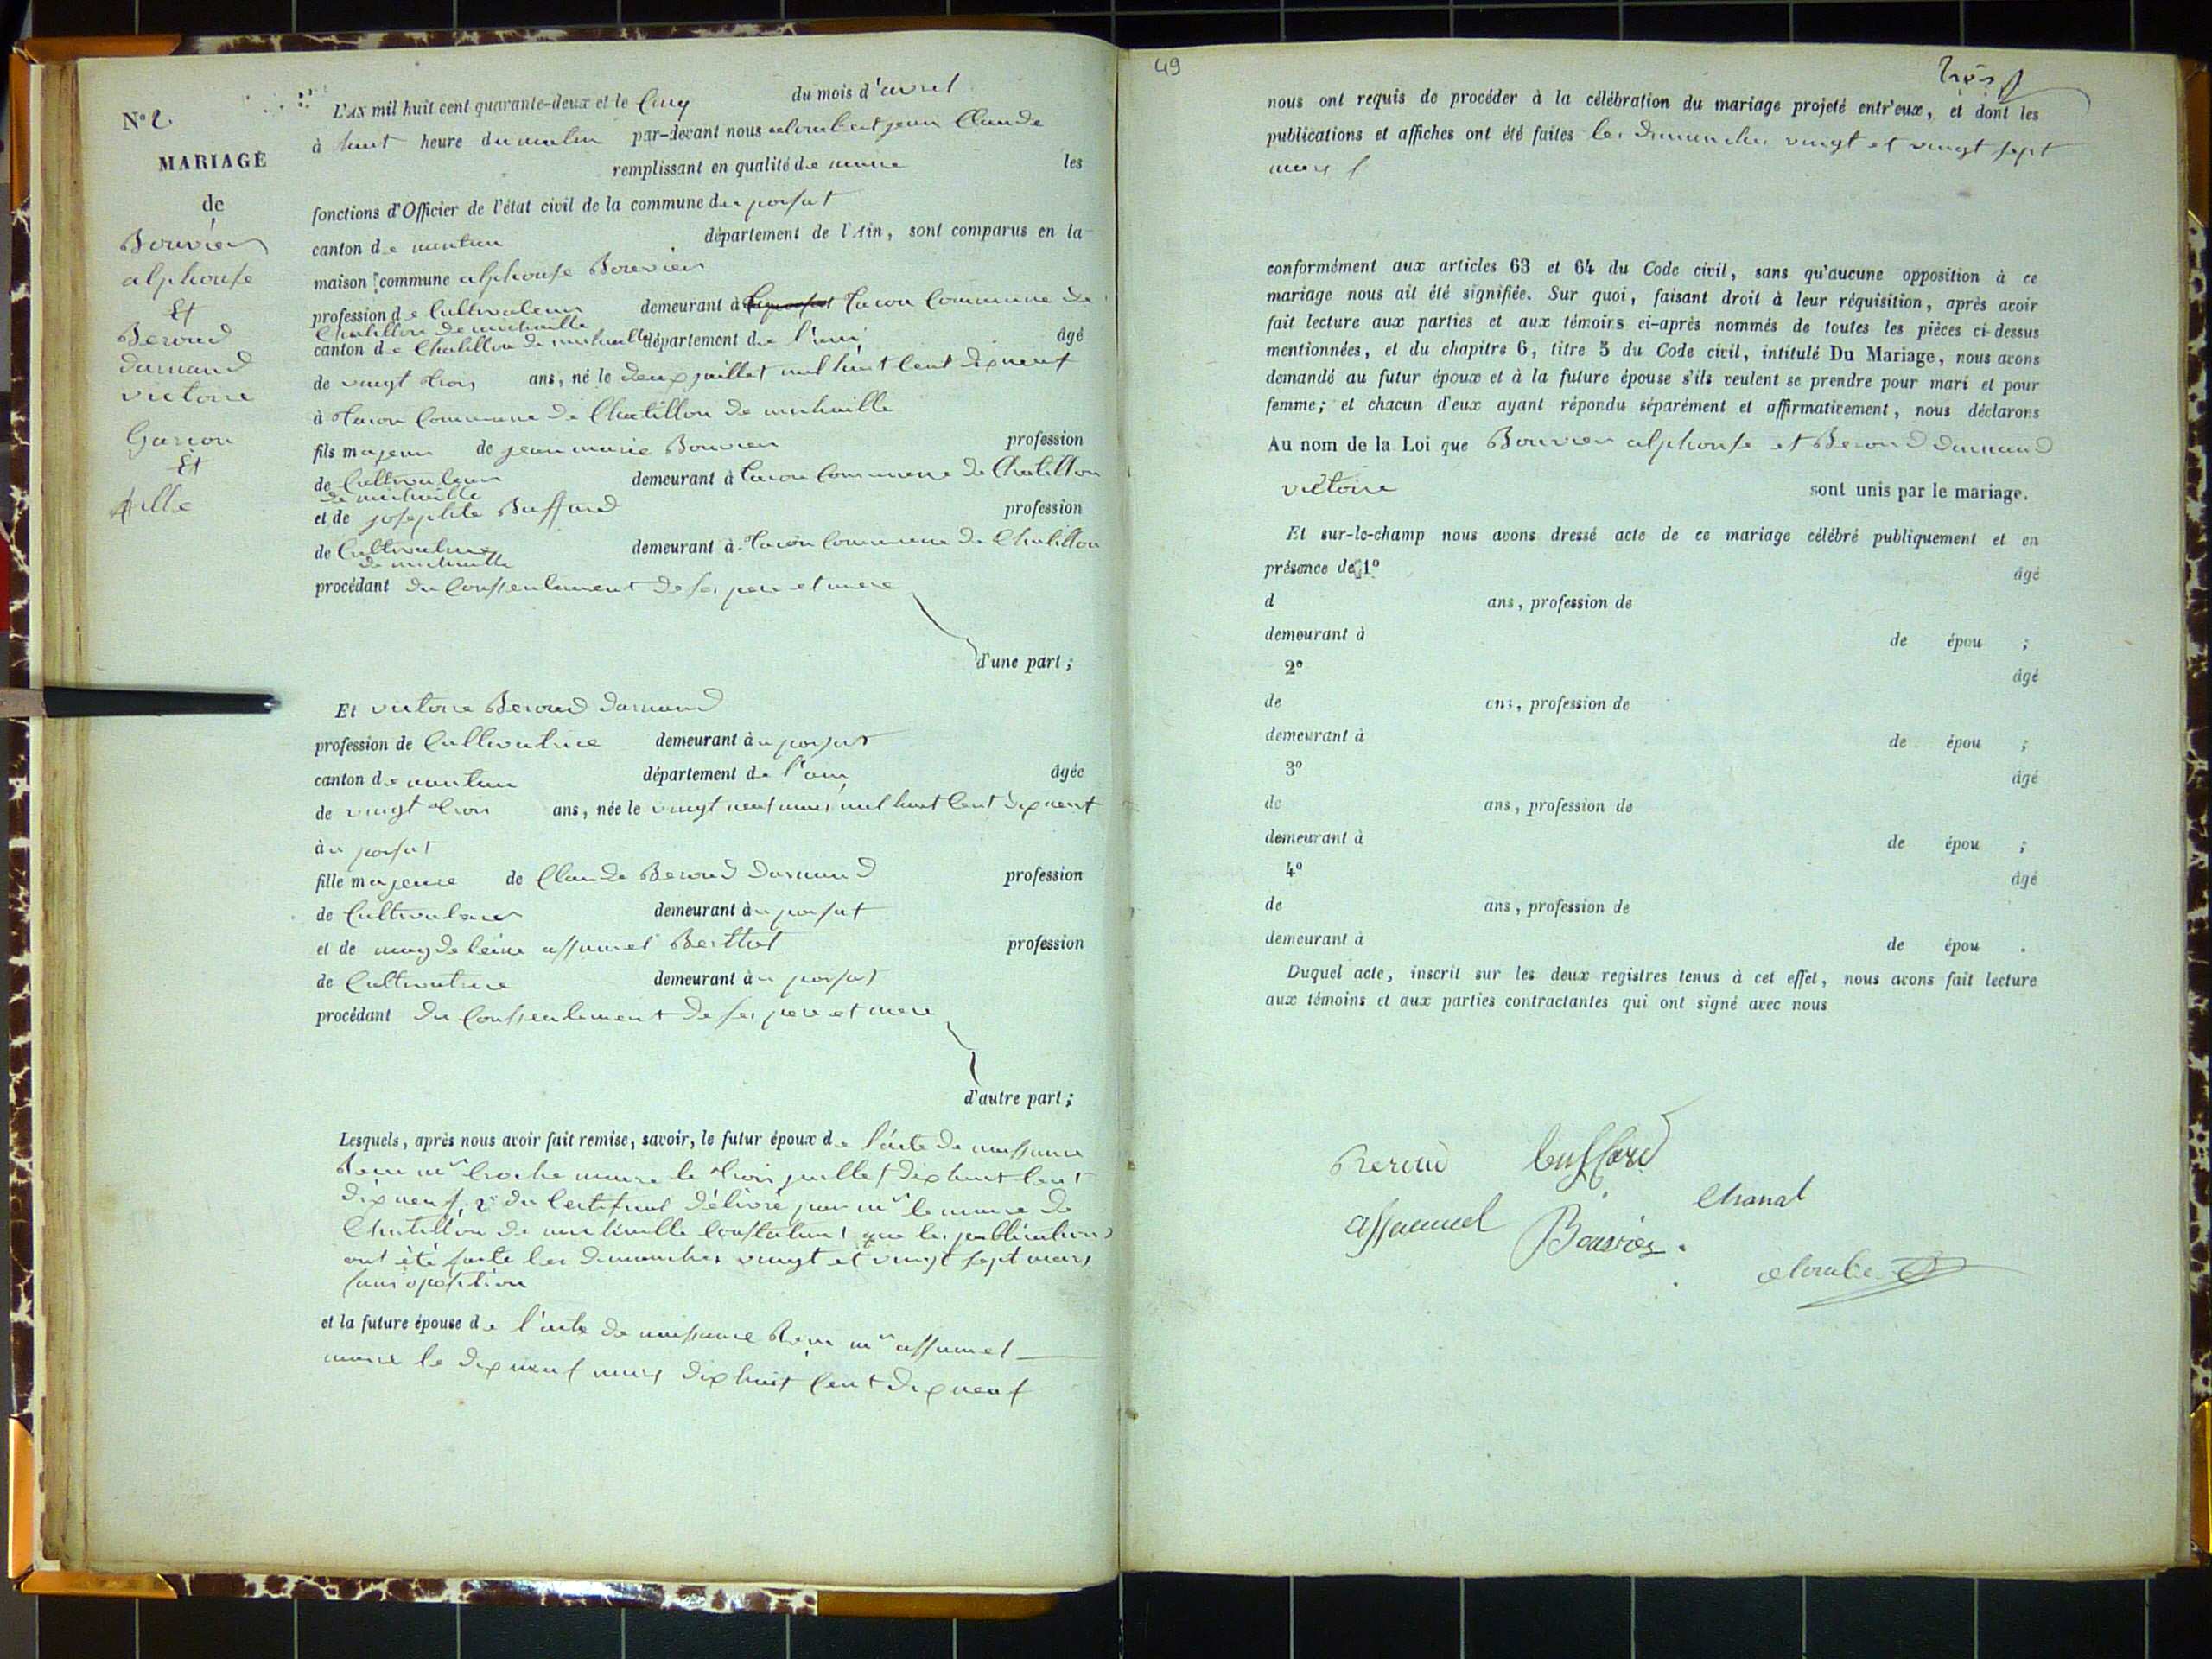 N° 2
MARIAGE
de
Bouvier
alphonse
Et
Beroud
darnand
victoire
Garcon
Et
fille
L'AN mil huit cent quarante-deux et le Cinq du mois d'avril
à huit heure du matin par-devant nous jean Claude
remplissant en qualité de maire les
fonctions d'Officier de l'état civil de la commune du poizat
canton de nantua département de l'Ain, sont comparus en la
maison commune alphonse Bouvier
profession de Cultivateur demeurant à tacon Commune de
Chatillon de michaille
canton de Chatillon de michaille département de l'ain âgé
de vingt trois ans, né le deux juillet mil huit Cent dix neuf
à tacon Commune de Chatillon de michaille
fils majeur de jean marie Bouvier profession
de Cultivateur demeurant à tacon Commune de Chatillon
de michaille
et de josephte Buffard profession
de Cultivatrice demeurant à tacon Commune de Chatillon
de michaille
procédant du Consentement de ses pere et mere
d'une part ;
Et victoire Beroud darnand
profession de Cultivatrice demeurant àu poizat
canton de nantua département de l'ain âgée
de vingt trois ans, née le vingt neuf mars mil huit Cent dix neuf
àu poizat
fille majeure de Claude Beroud darnand profession
de Cultivateur demeurant àu poizat
et de magdeleine assumel Berthet profession
de Cultivatrice demeurant àu poizat
procédant du Consentement de ses pere et mere
d'autre part ;
Lesquels, après nous avoir fait remise, savoir, le futur époux de l'acte de naissance
maire le trois juillet dix huit Cent
dix neuf, 2° du Certificat délivré par mr le maire de
Chatillon de michaille Constatant que les publications
ont été faite les dimanches vingt et vingt sept mars
sans oposition
et la future épouse de l'acte de naissance mr assumel
maire le dix neuf mars dix huit Cent dix neuf
49
trois
nous ont requis de procéder à la célébration du mariage projeté entr'eux, et dont les
publications et affiches ont été faites les dimanches vingt et vingt sept
mars
conformément aux articles 63 et 64 du Code civil, sans qu'aucune opposition à ce
mariage nous ait été signifiée. Sur quoi, faisant droit à leur réquisition, après avoir
fait lecture aux parties et aux témoins ci-après nommés de toutes les pièces ci-dessus
mentionnées, et du chapitre 6, titre 5 du Code civil, intitulé Du Mariage, nous avons
demandé au futur époux et à la future épouse s'ils veulent se prendre pour mari et pour
femme ; et chacun d'eux ayant répondu séparément et affirmativement, nous déclarons
Au nom de la Loi que Bouvier alphonse et Beroud darnand
victoire sont unis par le mariage.
Et sur-le-champ nous avons dressé acte de ce mariage célébré publiquement et en
présence de 1° âgé
d ans, profession de
demeurant à de épou ;
2° âgé
de ans, profession de
demeurant à de épou ;
3° âgé
de ans, profession de
demeurant à de épou ;
4° âgé
de ans, profession de
demeurant à de épou .
Duquel acte, inscrit sur les deux registres tenus à cet effet, nous avons fait lecture
aux témoins et aux parties contractantes qui ont signé avec nous
Beroud buffard
Chanal
assumel Bouvier